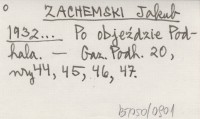 ZACHEMSKI Jakub
1932... Po objeździe Pod-
hala. — Gaz. Podh. 20,
nry 44, 45, 46, 47.